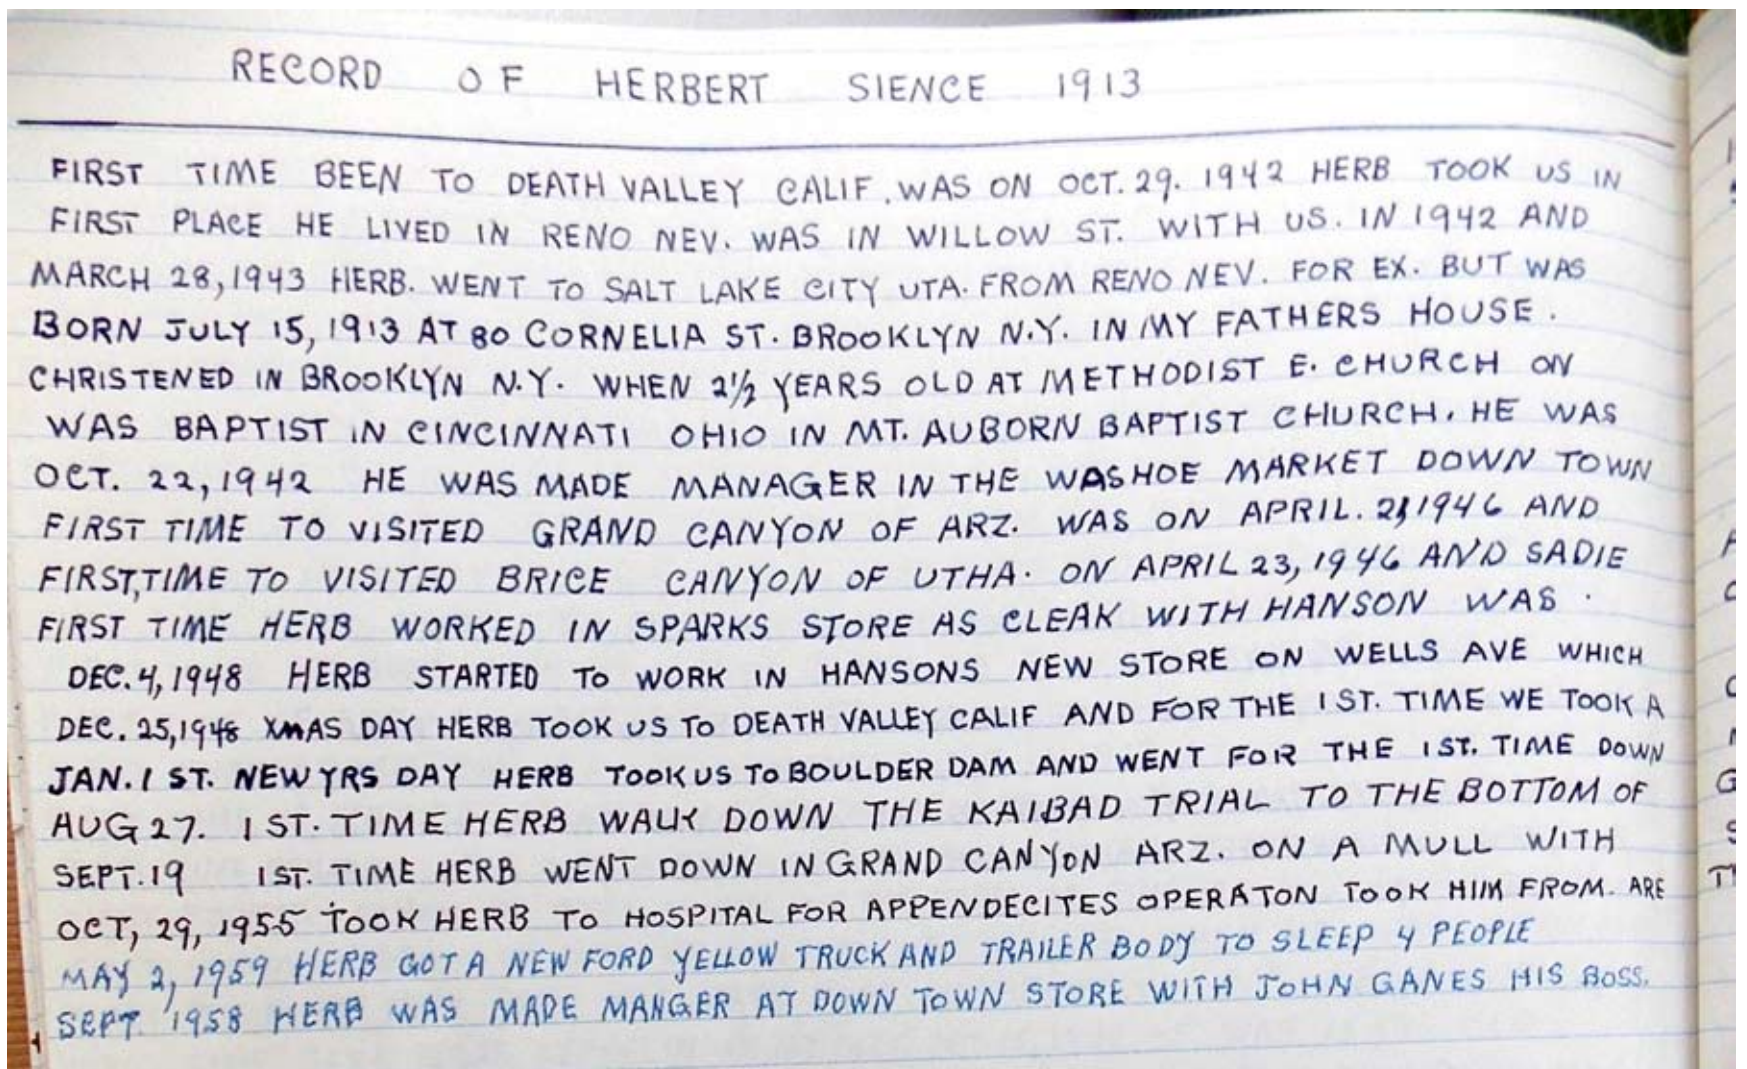 RECORD OF HERBERT SIENCE 1913
FIRST TIME BEEN TO DEATH VALLEY CALIF. WAS ON OCT. 29. 1942 HERB TOOK US IN
FIRST PLACE HE LIVED IN RENO NEV. WAS IN WILLOW ST. WITH US. IN 1942 AND
MARCH 28, 1943 HERB. WENT TO SALT LAKE CITY UTA. FROM RENO NEV. FOR EX. BUT WAS
BORN JULY 15, 1913 AT 80 CORNELIA ST. BROOKLYN N.Y. IN MY FATHERS HOUSE.
CHRISTENED IN BROOKLYN N.Y. WHEN 2½ YEARS OLD AT METHODIST E. CHURCH ON
WAS BAPTIST IN CINCINNATI OHIO IN MT. AUBORN BAPTIST CHURCH. HE WAS
OCT. 22, 1942 HE WAS MADE MANAGER IN THE WASHOE MARKET DOWN TOWN
FIRST TIME TO VISITED GRAND CANYON OF ARZ. WAS ON APRIL. 21 1946 AND
FIRST, TIME TO VISITED BRICE CANYON OF UTHA. ON APRIL 23, 1946 AND SADIE
FIRST TIME HERB WORKED IN SPARKS STORE AS CLEAK WITH HANSON WAS.
DEC. 4, 1948 HERB STARTED TO WORK IN HANSONS NEW STORE ON WELLS AVE WHICH
DEC. 25, 1948 XMAS DAY HERB TOOK US TO DEATH VALLEY CALIF AND FOR THE 1ST. TIME WE TOOK A
JAN. 1 ST. NEW YRS DAY HERB TOOK US TO BOULDER DAM AND WENT FOR THE 1ST. TIME DOWN
AUG 27. 1 ST. TIME HERB WALK DOWN THE KAIBAD TRIAL TO THE BOTTOM OF
SEPT. 19 1ST. TIME HERB WENT DOWN IN GRAND CANYON ARZ. ON A MULL WITH
OCT, 29, 1955 TOOK HERB TO HOSPITAL FOR APPENDECITES OPERATON TOOK HIM FROM. ARE
MAY 2, 1959 HERB GOT A NEW FORD YELLOW TRUCK AND TRAILER BODY TO SLEEP 4 PEOPLE
SEPT. 1958 HERB WAS MADE MANGER AT DOWN TOWN STORE WITH JOHN GANES HIS BOSS.